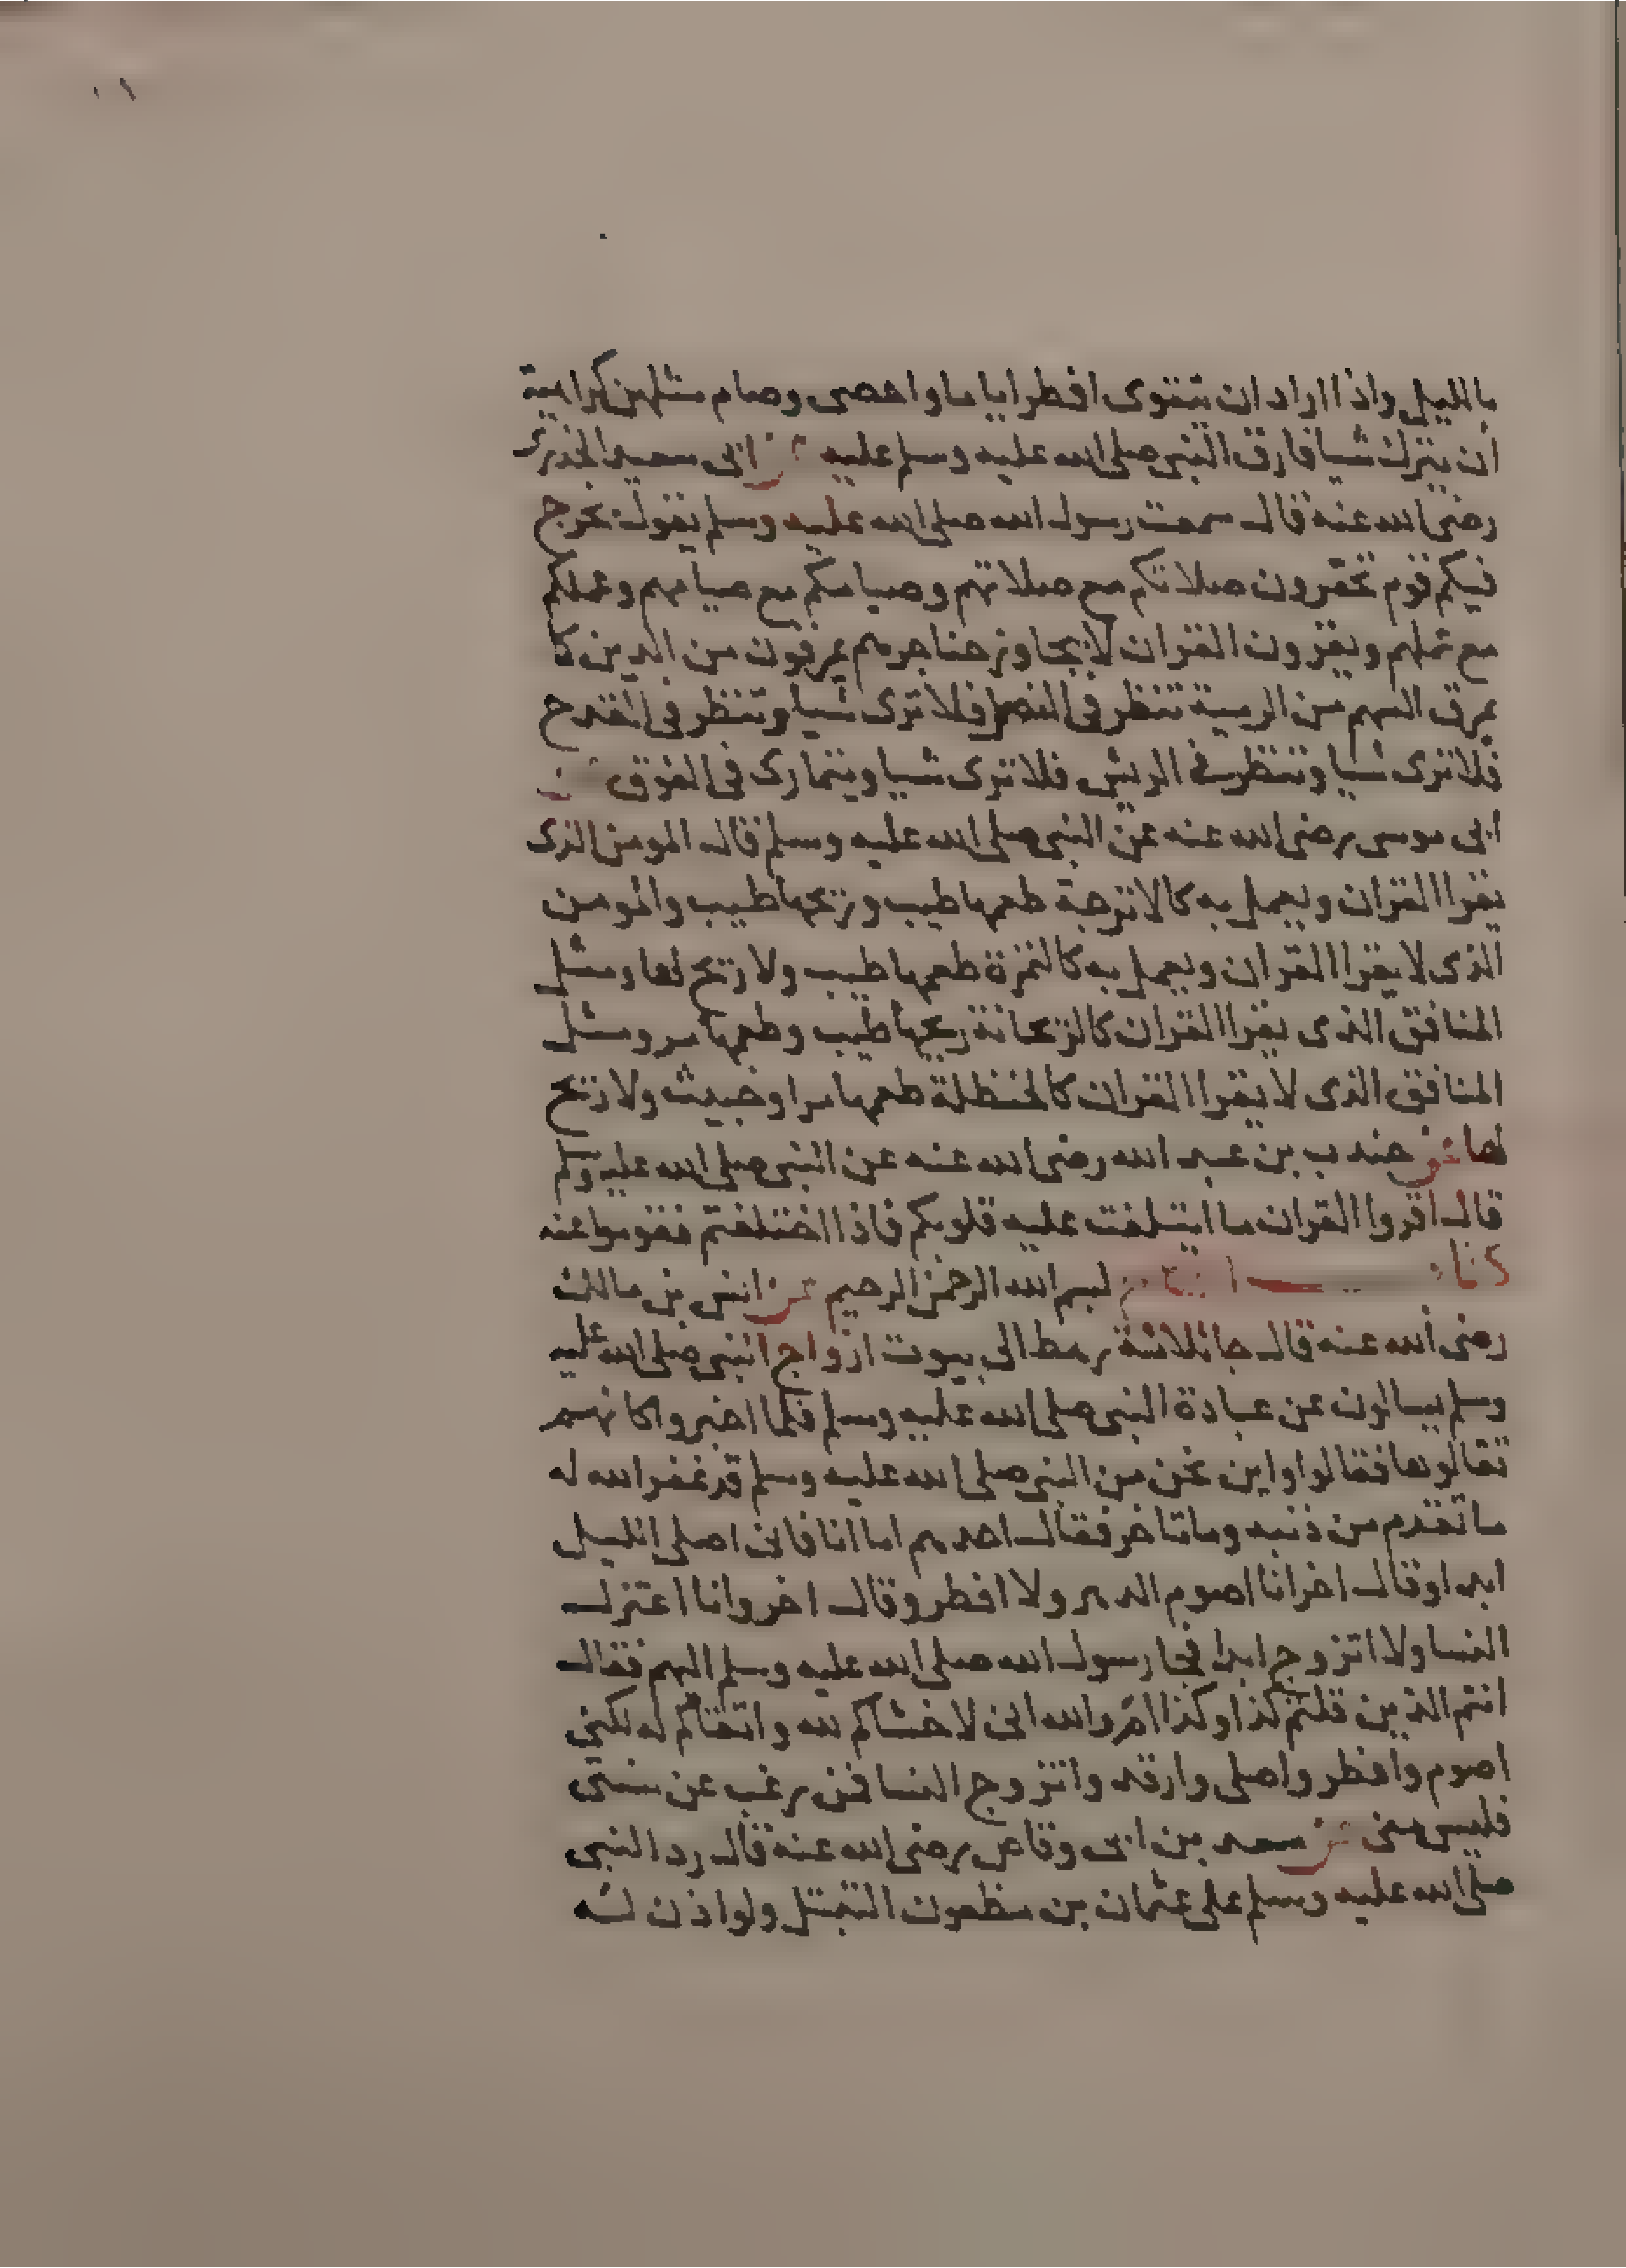 بالليل واذا اراد ان يتقوى افطر اياما واحصى وصام مثلهن كراهية
ان يترك شيا فارق النبي صلى الله عليه وسلم عليه عن ابى سعيد الخدرى
رضى الله عنه قال سمعت رسول الله صلى الله عليه وسلم يقول يخرج
فيكم قوم تحقرون صلاتكم مع صلاتهم وصيامكم مع صيامهم وعملكم
مع عملهم ويقرون القران لا يجاوز حناجرهم يمرقون من الدين كا
يمرق السهم من الرمية تنظر فى النصل فلا ترى شيا وتنظر فى القدح
فلا ترى شيا وتنظر فى الريش فلا ترى شيا ويتمارى فى الفوق عن
ابى موسى رضى الله عنه عن النبى صلى الله عليه وسلم قال المومن الذى
يقرا القران ويعمل به كالاترجة طعمها طيب وريحها طيب والمومن
الذى لا يقرا القران ويعمل به كالتمرة طعمها طيب ولا ريح لها ومثل
المنافق الذى يقرا القران كالريحانة ريحها طيب وطعمها مر ومثل
المنافق الذى لا يقرا القران كالحنظلة طعمها مر او خبيث ولا ريح
لها عن جندب بن عبد الله رضى الله عنه عن النبى صلى الله عليه وسلم
قال اقروا القران ما ايتلفت عليه قلوبكم فاذا اختلفتم فقوموا عنه
كتاب بسم الله الرحمن الرحيم عن انس بن مالك
رضى الله عنه قال جا ثلاثة رهط الى بيوت ازواج النبى صلى الله عليه
وسلم يسالون عن عبادة النبى صلى الله عليه وسلم فلما اخبروا كانهم
تقالوها فقالوا واين نحن من النبى صلى الله عليه وسلم قد غفر الله له
ما تقدم من ذنبه وما تاخر فقال احدهم اما انا فانى اصلى الليل
ابدا وقال اخر انا اصوم الدهر ولا افطر وقال اخر وانا اعتزل
النسا ولا اتزوج ابدا فجا رسول الله صلى الله عليه وسلم اليهم فقال
انتم الذين قلتم كذا وكذا اما والله انى لاخشاكم لله واتقاكم له لكنى
اصوم وافطر واصلى وارقد واتزوج النسا فمن رغب عن سنتى
فليس منى عن سعد بن ابى وقاص رضى الله عنه قال رد النبى
صلى الله عليه وسلم على عثمان بن مظعون التبتل ولو اذن له